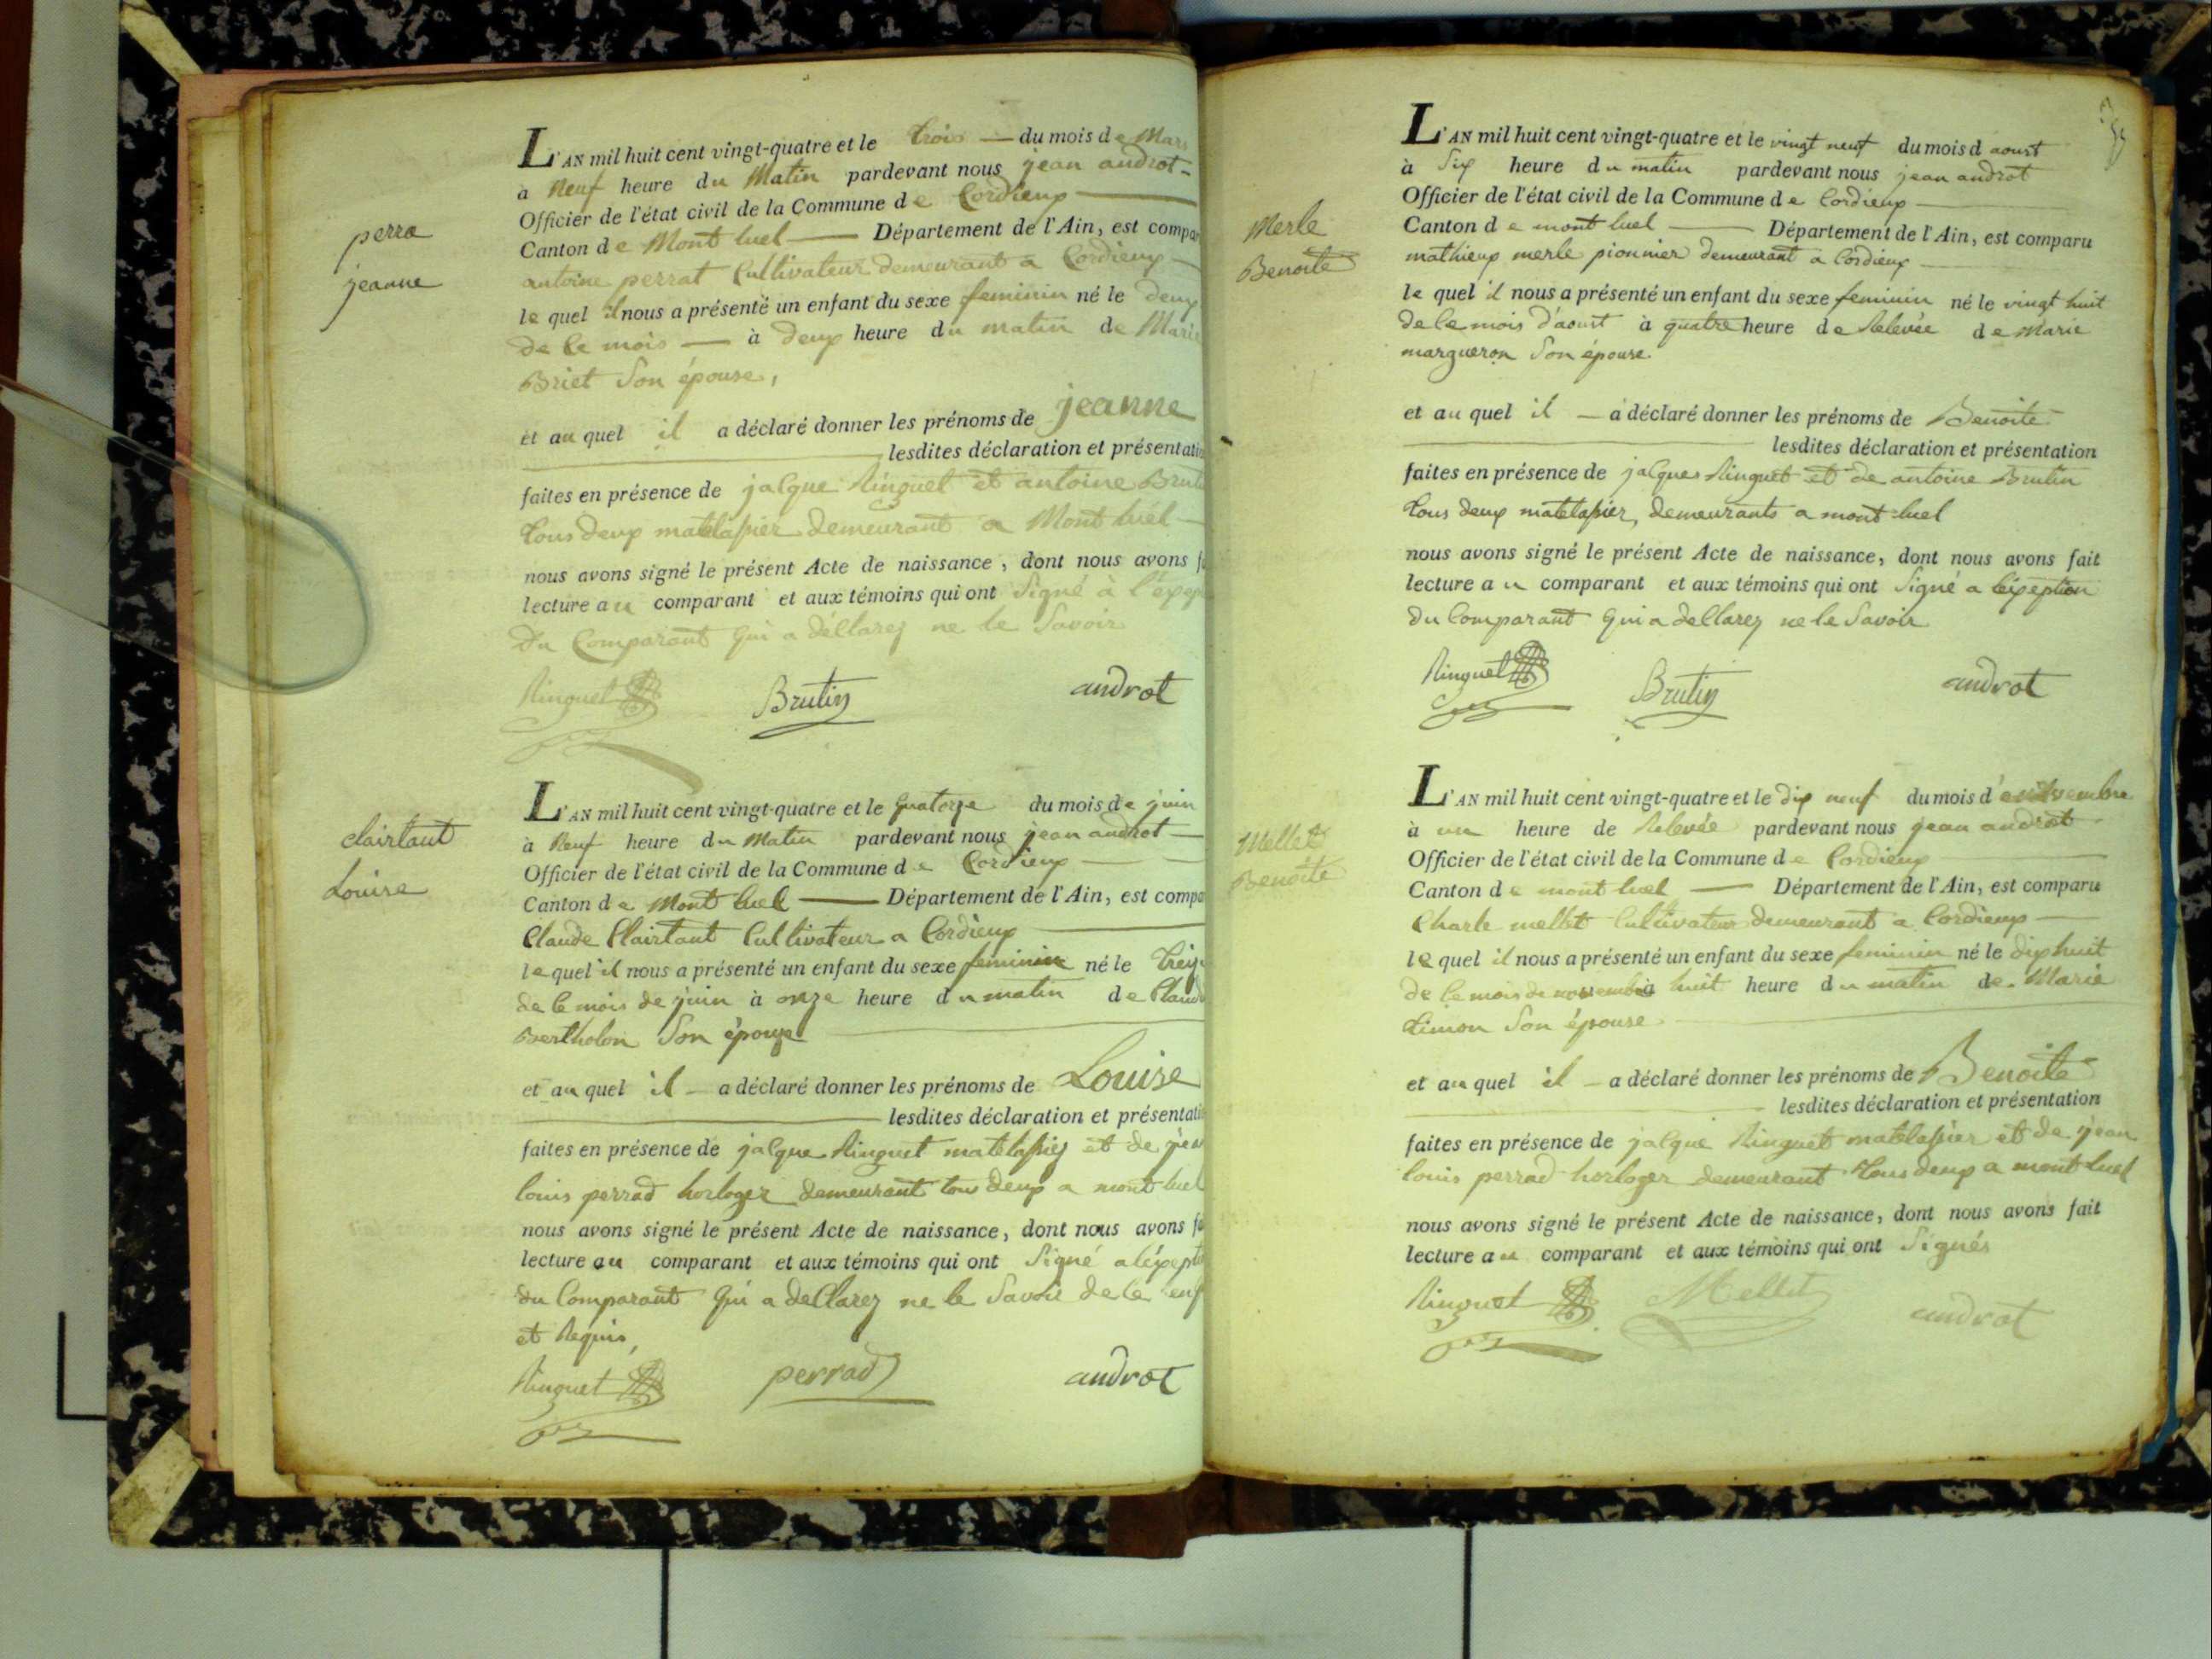 perra
jeanne
L'AN mil huit cent vingt-quatre et le trois — du mois de Mars
à Neuf heure du Matin pardevant nous jean androt
Officier de l'état civil de la Commune de Cordieux
Canton de Mont luel — Département de l'Ain, est compar
antoine perrat Cultivateur demeurant a Cordieux
le quel il nous a présenté un enfant du sexe feminin né le deux
de ce mois — à deux heure du matin de Marie
Briet Son épouse,
et au quel il a déclaré donner les prénoms de jeanne
lesdites déclaration et présentation
faites en présence de jalque Ringuet et antoine Bruti
tous deux matelassier demeurant a Mont luel
nous avons signé le présent Acte de naissance, dont nous avons f
lecture au comparant et aux témoins qui ont Signé à l'exep
du Comparant Qui a déllarez ne le Savoir
Ringuet Brutin androt
clairtant
Louise
L'AN mil huit cent vingt-quatre et le quatorze du mois de juin
à Neuf heure du Matin pardevant nous jean androt
Officier de l'état civil de la Commune de Cordieux
Canton de Mont luel — Département de l'Ain, est compa
Claude Clairtant Cultivateur a Cordieux
le quel il nous a présenté un enfant du sexe feminin né le treize
de ce mois de juin à onze heure du matin de Claud
Bertholon Son épouze
et au quel il — a déclaré donner les prénoms de Louise
lesdites déclaration et présentati
faites en présence de jalque Ringuet matelassiez et de jean
louis perrad horloger demeurant tous deux a mont luel
nous avons signé le présent Acte de naissance, dont nous avons fa
lecture au comparant et aux témoins qui ont Signé a léxeptio
du Comparant Qui a dellarez ne le Savoir de ce enf
et Requis,
Ringuet perrad androt
Merle
Benoite
L'AN mil huit cent vingt-quatre et le vingt neuf du mois d'aoust
à Six heure du matin pardevant nous jean androt
Officier de l'état civil de la Commune de Cordieux
Canton de mont luel — Département de l'Ain, est comparu
mathieux merle pionnier demeurant a Cordieux
le quel il nous a présenté un enfant du sexe feminin né le vingt huit
de ce mois d'aoust à quatre heure de Relevée de Marie
margueron Son épouse
et au quel il — a déclaré donner les prénoms de Benoite
lesdites déclaration et présentation
faites en présence de jalques Ringuet et de antoine Brutin
tous deux matelassier, demeurants a mont luel
nous avons signé le présent Acte de naissance, dont nous avons fait
lecture au comparant et aux témoins qui ont Signé a léxeption
du Comparant Qui a dellarez ne le Savoir
Ringuet Brutin androt
Mellet
Benoite
L'AN mil huit cent vingt-quatre et le dix neuf du mois d
à une heure de Relevée pardevant nous jean androt
Officier de l'état civil de la Commune de Cordieux
Canton de mont luel — Département de l'Ain, est comparu
Charle mellet Cultivateur demeurant a Cordieux
le quel il nous a présenté un enfant du sexe feminin né le dix huit
de ce mois de novembre à huit heure du matin de Marie
timon Son épouse
et au quel il — a déclaré donner les prénoms de Benoite
lesdites déclaration et présentation
faites en présence de jalque Ringuet matelassier et de jean
louis perrad horloger demeurant tous deux a mont luel
nous avons signé le présent Acte de naissance, dont nous avons fait
lecture au comparant et aux témoins qui ont Signés
Ringuet Mellet androt